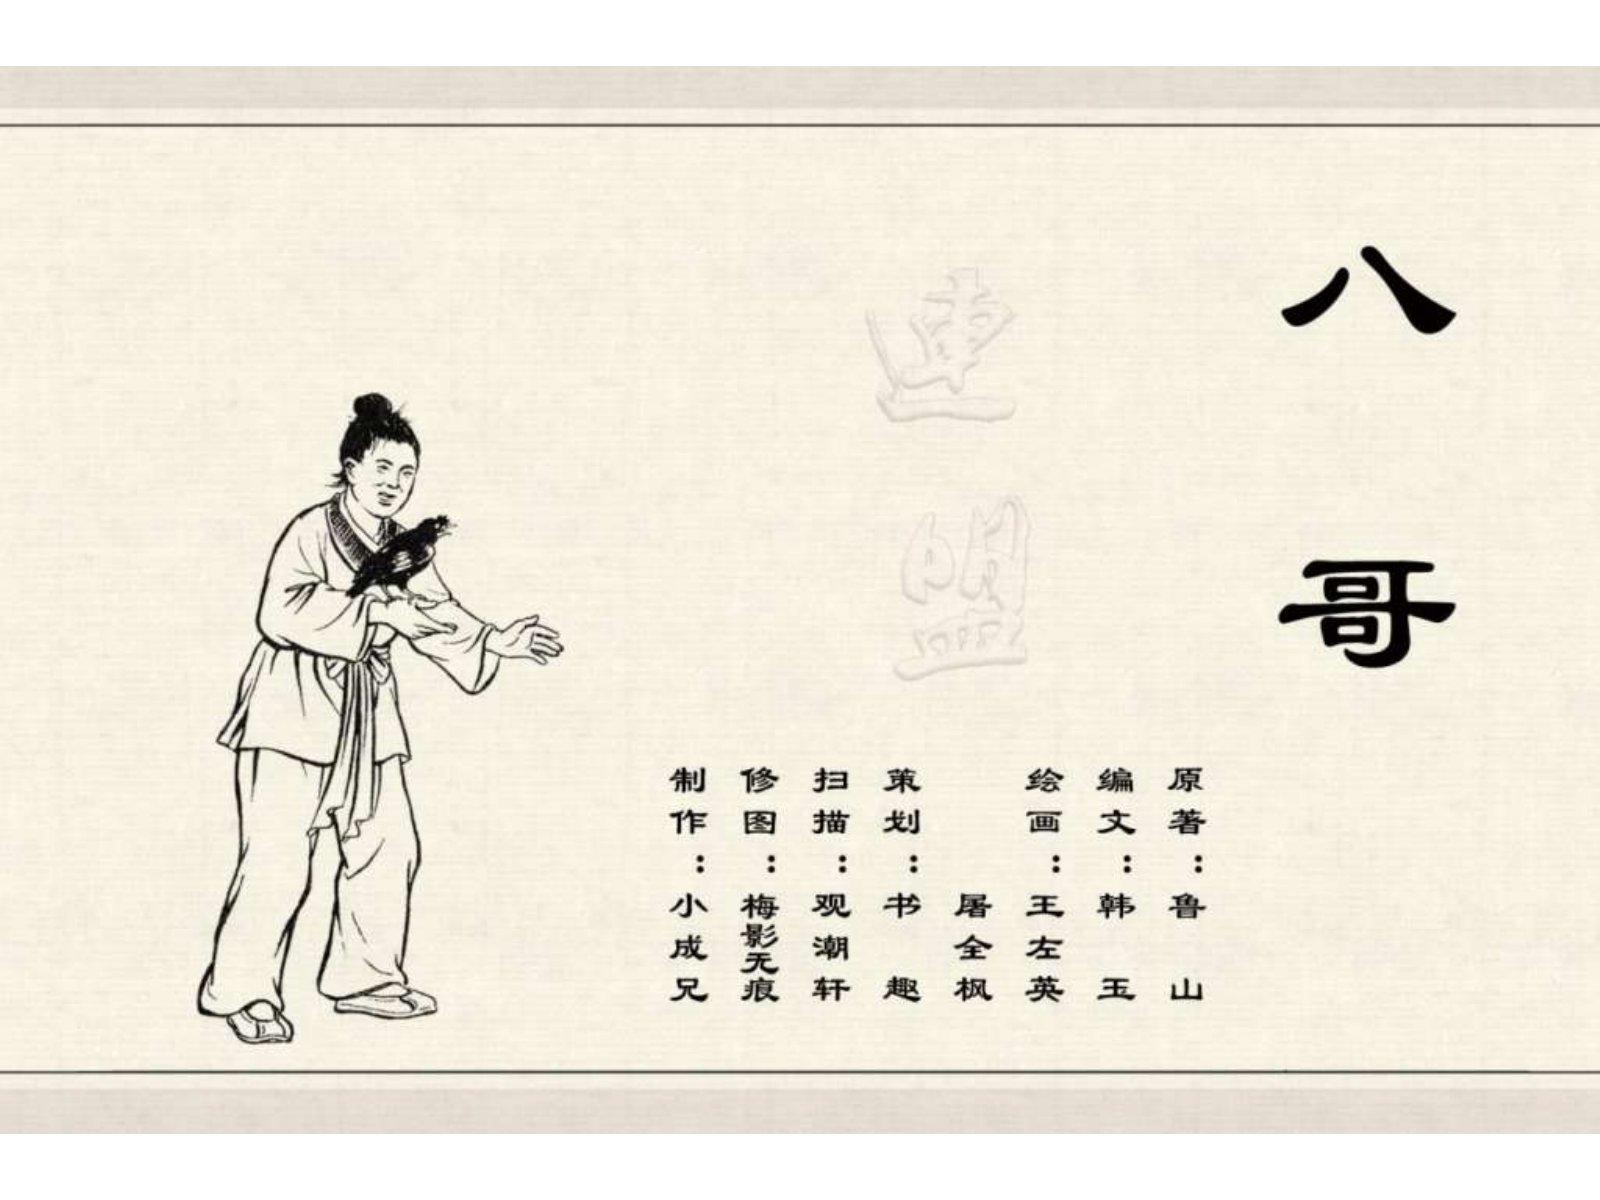 八哥
原著：鲁山
编文：韩玉
绘画：王左英
屠全枫
策划：书趣
扫描：观潮轩
修图：梅影无痕
制作：小成兄
連盟